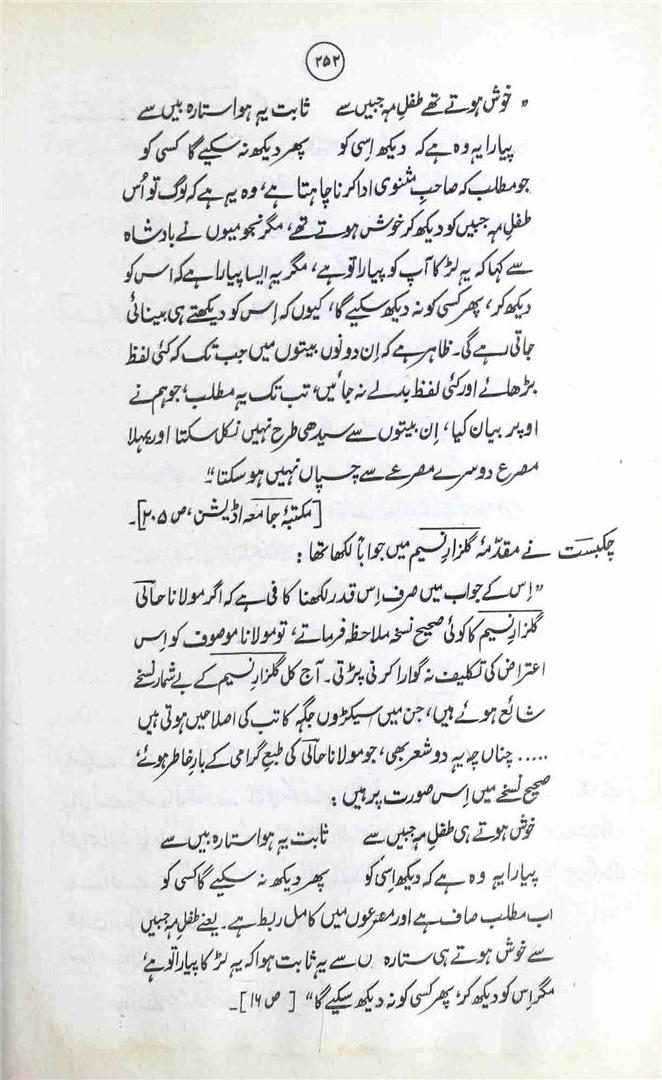 ۲۵۲
" خوش ہوتے تھے طفلِ مہ جبیں سے ثابت یہ ہوا ستارہ بیں سے
پیارا یہ وہ ہے کہ دیکھ اِسی کو پھر دیکھ نہ سکیے گا کسی کو
جو مطلب کہ صاحبِ مثنوی ادا کرنا چاہتا ہے، وہ یہ ہے کہ لوگ تو اُس
طفلِ مہ جبیں کو دیکھ کر خوش ہوتے تھے، مگر نجومیوں نے بادشاہ
سے کہا کہ یہ لڑکا آپ کو پیارا تو ہے، مگر یہ ایسا پیارا ہے کہ اس کو
دیکھ کر، پھر کسی کو نہ دیکھ سکیے گا، کیوں کہ اِس کو دیکھتے ہی بینائی
جاتی رہے گی۔ ظاہر ہے کہ اِن دونوں بیتوں میں جب تک کہ کئی لفظ
بڑھائے اور کئی لفظ بدلے نہ جائیں، تب تک یہ مطلب، جو ہم نے
اوپر بیان کیا، اِن بیتوں سے سیدھی طرح نہیں نکل سکتا اور پہلا
مصرع دوسرے مصرعے سے چسپاں نہیں ہو سکتا"۔
[مکتبۂ جامعہ اڈیشن، ص ۲۰۵]۔
چکبست نے مقدّمۂ گلزارِ نسیم میں جواباً لکھا تھا :
"اِس کے جواب میں صرف اِس قدر لکھنا کافی ہے کہ اگر مولانا حالی
گلزارِ نسیم کا کوئی صحیح نسخہ ملاحظہ فرماتے، تو مولانا موصوف کو اِس
اعتراض کی تکلیف نہ گوارا کرنی پڑتی۔ آج کل گلزارِ نسیم کے بے شمار نسخے
شائع ہوئے ہیں، جن میں سیکڑوں جگہ کاتب کی اصلاحیں ہوتی ہیں
..... چناں چہ یہ دو شعر بھی، جو مولانا حالی کی طبعِ گرامی کے بارِ خاطر ہوئے،
صحیح نسخے میں اِس صورت پر ہیں :
خوش ہوتے ہی طفلِ مہ جبیں سے ثابت یہ ہوا ستارہ بیں سے
پیارا یہ وہ ہے کہ دیکھ اِسی کو پھر دیکھ نہ سکیے گا کسی کو
اب مطلب صاف ہے اور مصرعوں میں کامل ربط ہے۔ یعنے طفلِ مہ جبیں
سے خوش ہوتے ہی ستارہ ں سے یہ ثابت ہوا کہ یہ لڑکا پیارا تو ہے،
مگر اِس کو دیکھ کر، پھر کسی کو نہ دیکھ سکیے گا" [ص ۱۶]۔